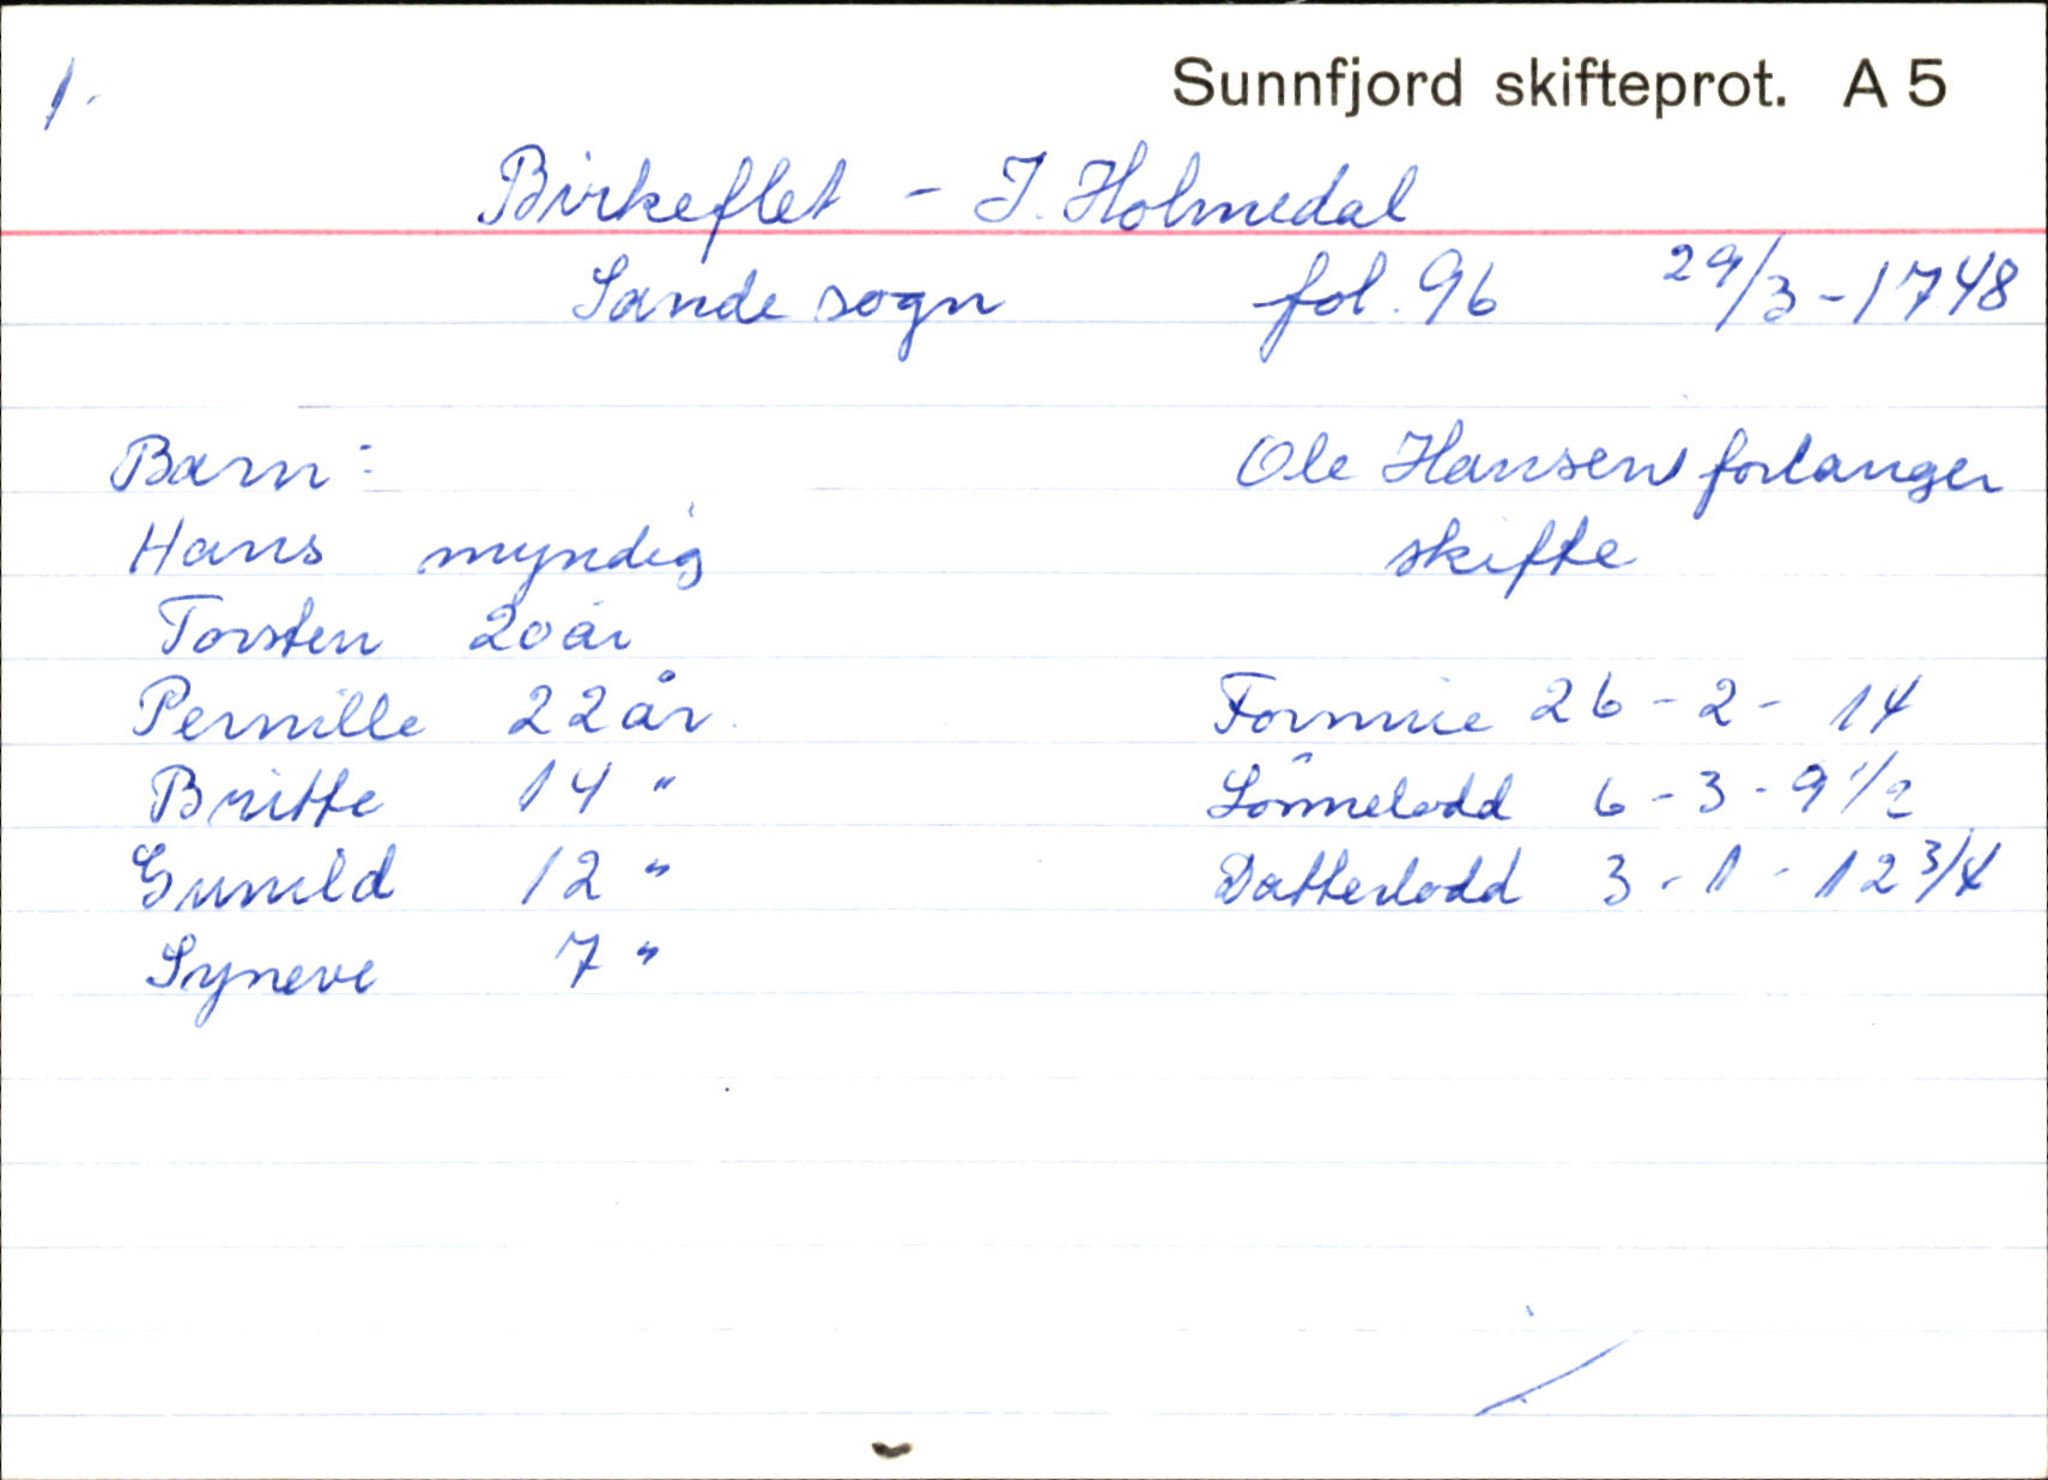 1.
Sunnfjord skifteprot. A 5
Birkeflet - I. Holmedal
Sande sogn fol. 96 29/3 - 1748
Barn: Ole Hansen forlanger
Hans myndig skifte
Torsten 20 år
Pernille 22 år. Formue 26 - 2 - 14
Britte 14 " Sönnelodd 6 - 3 - 9 1/2
Gunild 12 " Datterlodd 3 - 1 - 12 3/4
Syneve 7 "